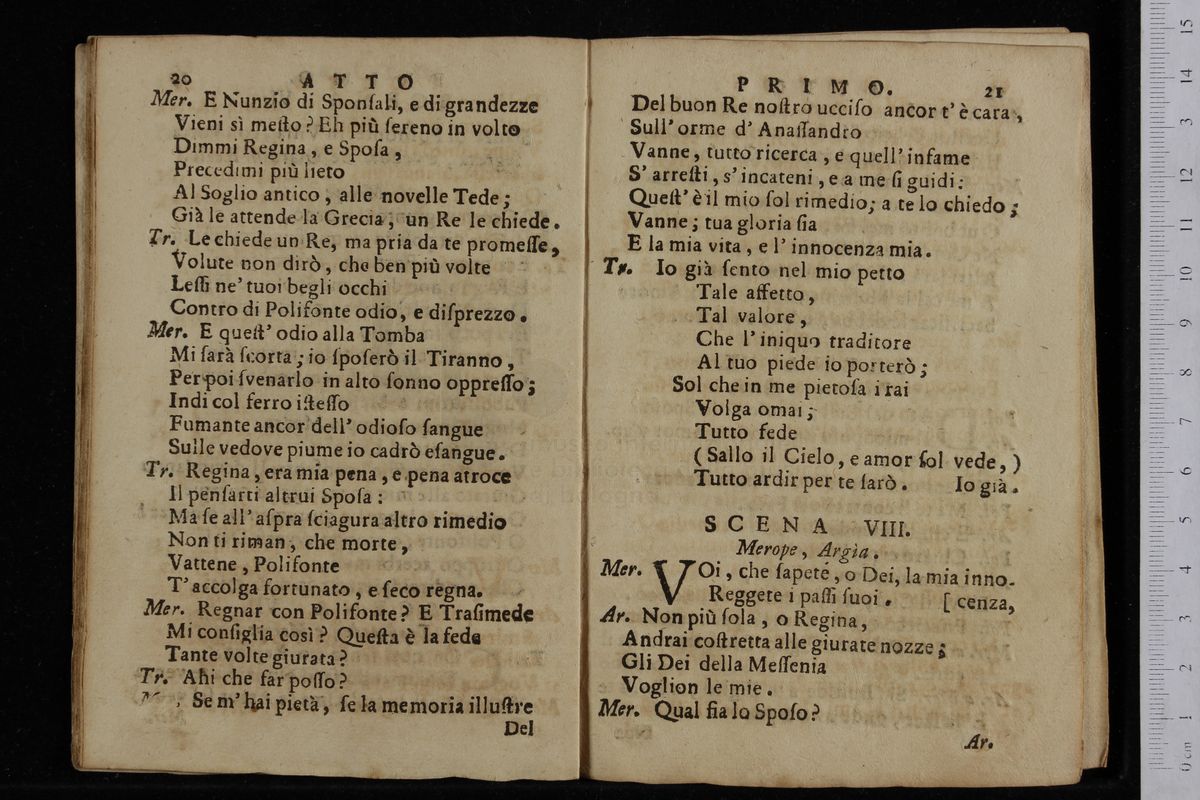 20 ATTO
Mer. E Nunzio di Sponſali, e di grandezze
Vieni sì meſto? Eh più ſereno in volto
Dimmi Regina, e Spoſa,
Precedimi più lieto
Al Soglio antico, alle novelle Tede;
Già le attende la Grecia, un Re le chiede.
Tr. Le chiede un Re, ma pria da te promeſſe,
Volute non dirò, che ben più volte
Leſſi ne' tuoi begli occhi
Contro di Polifonte odio, e diſprezzo.
Mer. E queſt' odio alla Tomba
Mi ſarà ſcorta; io ſpoſerò il Tiranno,
Per poi ſvenarlo in alto ſonno oppreſſo;
Indi col ferro iſteſſo
Fumante ancor dell' odioſo ſangue
Sulle vedove piume io cadrò eſangue.
Tr. Regina, era mia pena, e pena atroce
Il penſarti altrui Spoſa:
Ma ſe all' aſpra ſciagura altro rimedio
Non ti riman, che morte,
Vattene, Polifonte
T' accolga fortunato, e ſeco regna.
Mer. Regnar con Polifonte? E Traſimede
Mi conſiglia così? Queſta è la fede
Tante volte giurata?
Tr. Ahi che far poſſo?
Se m' hai pietà, ſe la memoria illuſtre
Del
PRIMO. 21
Del buon Re noſtro ucciſo ancor t' è cara,
Sull' orme d' Anaſſandro
Vanne, tutto ricerca, e quell' infame
S' arreſti, s' incateni, e a me ſi guidi:
Queſt' è il mio ſol rimedio; a te lo chiedo;
Vanne; tua gloria ſia
E la mia vita, e l' innocenza mia.
Tr. Io già ſento nel mio petto
Tale affetto,
Tal valore,
Che l' iniquo traditore
Al tuo piede io porterò;
Sol che in me pietoſa i rai
Volga omai;
Tutto fede
(Sallo il Cielo, e amor ſol vede,)
Tutto ardir per te ſarò. Io già.
SCENA VIII.
Merope, Argìa.
Mer. VOi, che ſapete, o Dei, la mia inno-
Reggete i paſſi ſuoi. [cenza,
Ar. Non più ſola, o Regina,
Andrai coſtretta alle giurate nozze;
Gli Dei della Meſſenia
Voglion le mie.
Mer. Qual fia lo Spoſo?
Ar.
0 cm 1 2 3 4 5 6 7 8 9 10 11 12 13 14 15